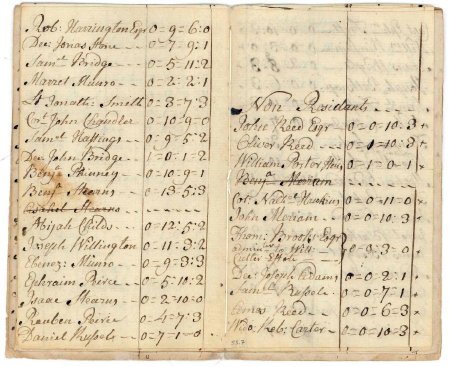 Rob: Harrington Esqr 0=9=6:0
Dec: Jonas Stone 0=7=9:1
Saml Bridge 0=5=11:2
Marret Munro 0=2:2:1
Lt Jonath: Smith 0=3=7:3
Crt John Chandler 0=10=9=0
Saml Hastings 0=9=5:2
Den John Bridge 1=0=1=2
Benj Phinney 0=10=9=1
Benj Stearns 0=13=5:3
Stearns
Abijah Childs 0=12:5:2
Joseph Willington 0=11=3:2
Ebenez: Munro 0=9=3:3
Ephraim Peirce 0=5:10:2
Isaac Stearns 0=2=10=0
Reuben Peirce 0=4=7:3
Daniel Russels 0=7-1=0
Non Residants
John Reed Esqr 0=0=10:3
Oliver Reed 0=0=10=2
William Porter 0=1=0=1
Benj Meriam
Crt Nath: Hoskins 0=0=11=0
John Meriam 0=0=10=3
Thom: Brooks Esqr
to Will 0=3=3=0
Cutler
Dec: Joseph Adams 0=0=2:1
Saml Russels 0=0=7=1
Amos Reed 0=0=6=3
Wido: Reb: Carter 0=0=10=3